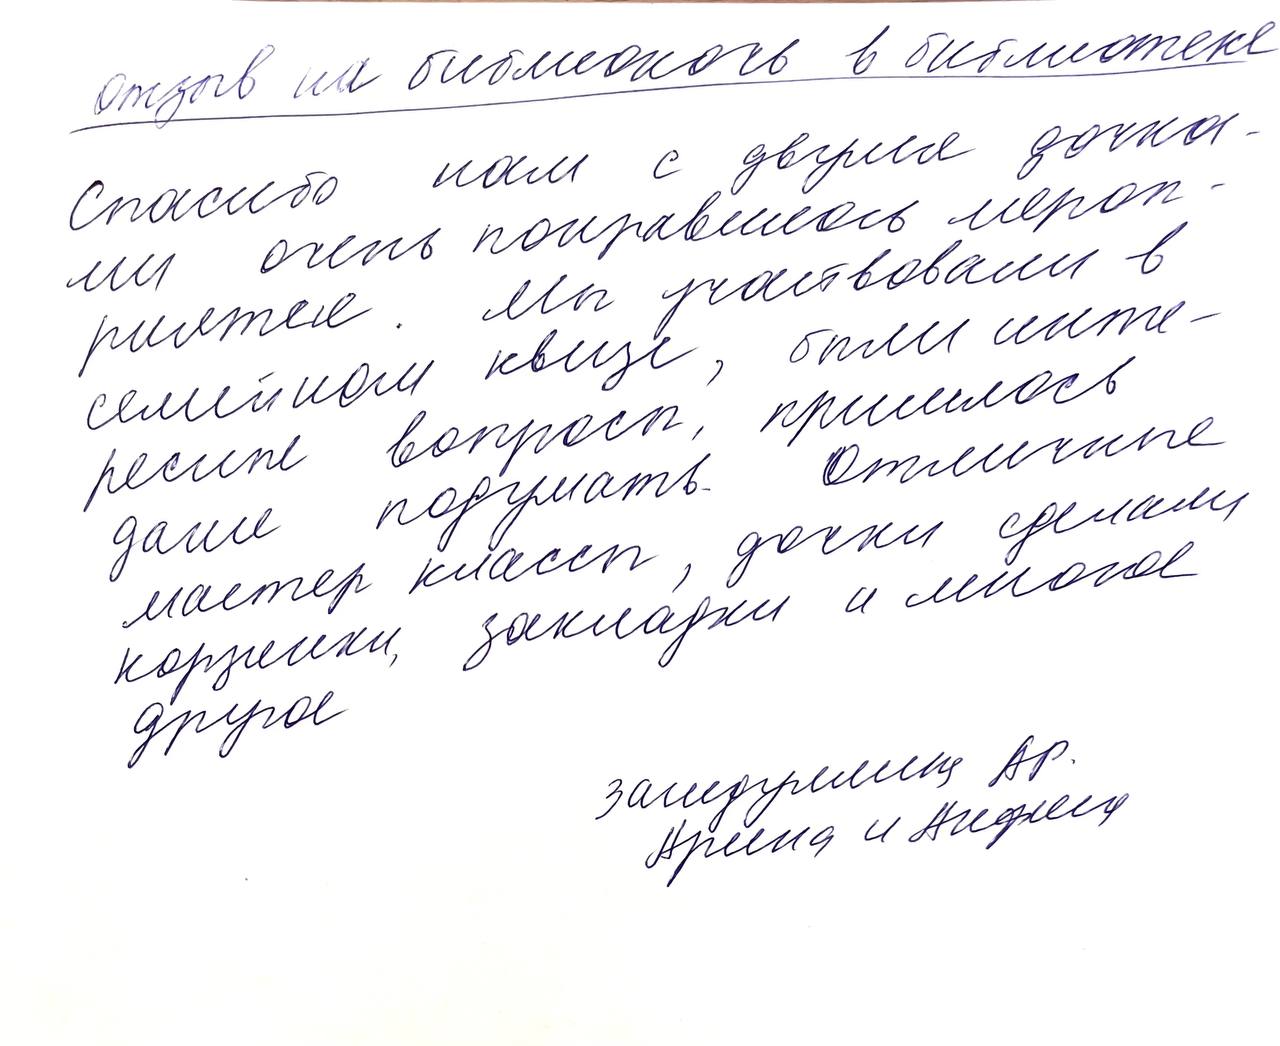 отзыв на библионочь в библиотеке
Спасибо нам с двумя дочка-
ми очень понравилось мероп-
риятие. Мы участвовали в
семейном квизе, были инте-
ресные вопросы, пришлось
даже подумать. Отличные
мастер классы, дочки сделали
корзинки, закладки и многое
другое
А.Р.
Арина и